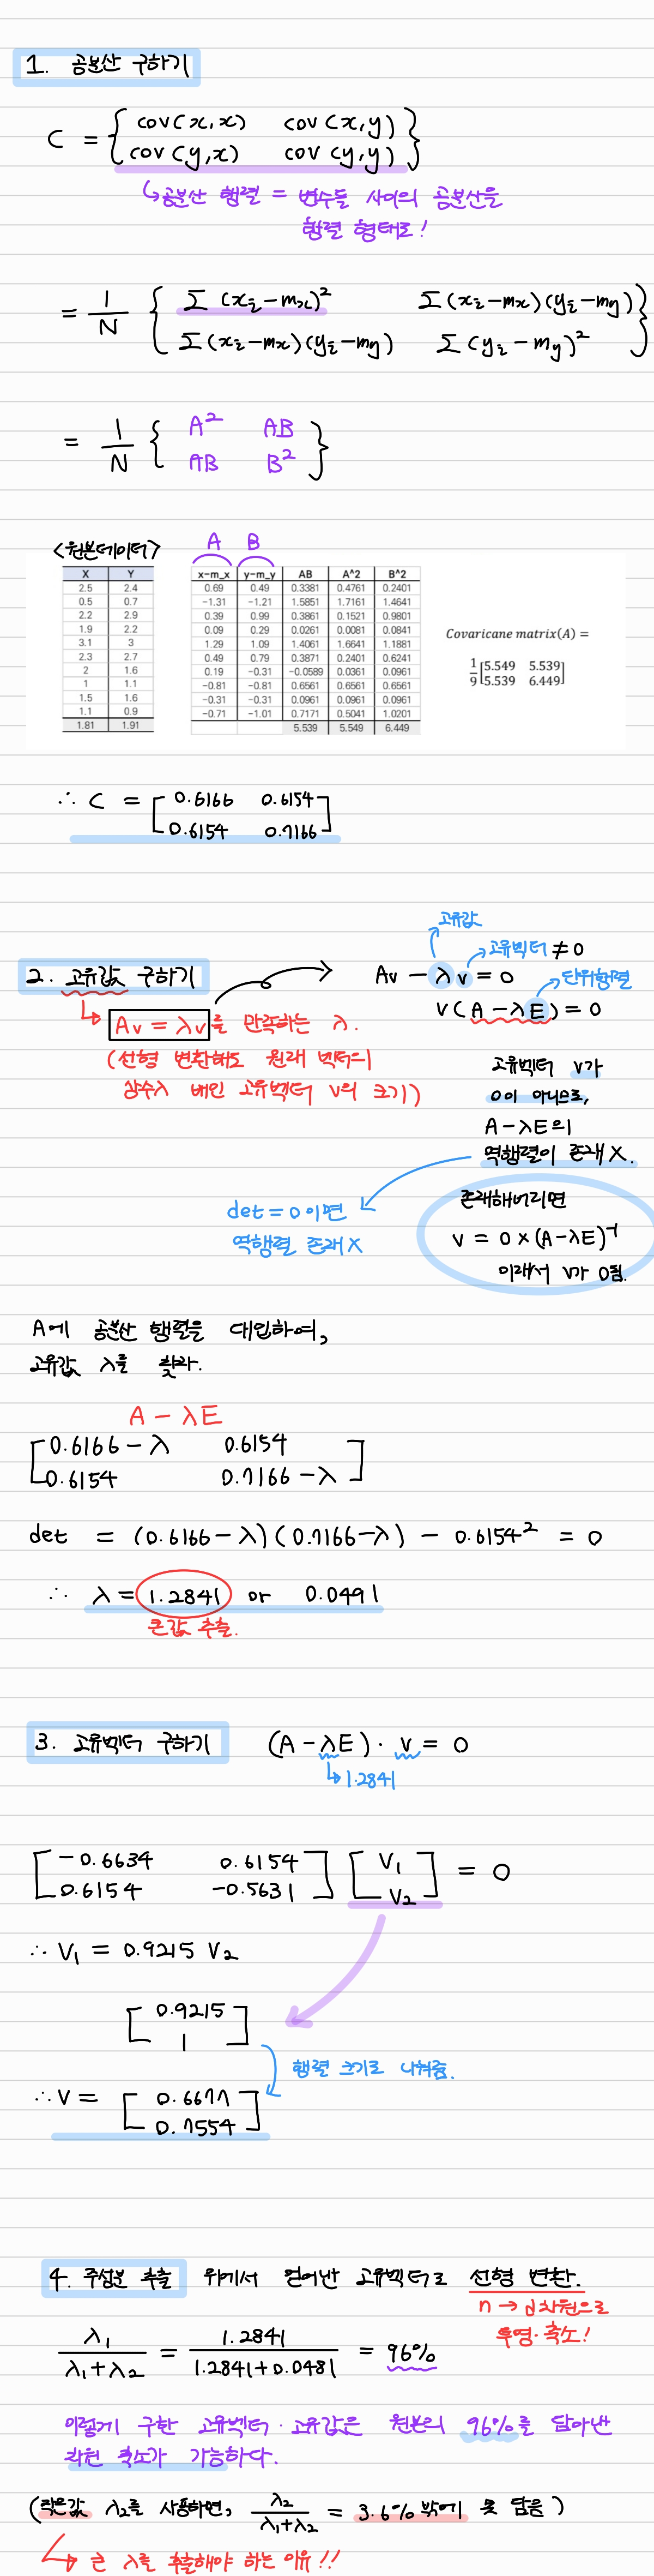 1. 공분산 구하기
C = { cov(x,x) cov(x,y)
cov(y,x) cov(y,y) }
↳공분산 행렬 = 변수들 사이의 공분산을
행렬 형태로!
= 1/N { Σ(xi-mx)² Σ(xi-mx)(yi-my)
Σ(xi-mx)(yi-my) Σ(yi-my)² }
= 1/N { A² AB
AB B² }
<원본데이터> A B
X Y x-m_x y-m_y AB A^2 B^2
2.5 2.4 0.69 0.49 0.3381 0.4761 0.2401
0.5 0.7 -1.31 -1.21 1.5851 1.7161 1.4641
2.2 2.9 0.39 0.99 0.3861 0.1521 0.9801
1.9 2.2 0.09 0.29 0.0261 0.0081 0.0841
3.1 3 1.29 1.09 1.4061 1.6641 1.1881
2.3 2.7 0.49 0.79 0.3871 0.2401 0.6241
2 1.6 0.19 -0.31 -0.0589 0.0361 0.0961
1 1.1 -0.81 -0.81 0.6561 0.6561 0.6561
1.5 1.6 -0.31 -0.31 0.0961 0.0961 0.0961
1.1 0.9 -0.71 -1.01 0.7171 0.5041 1.0201
1.81 1.91 5.539 5.549 6.449
Covaricane matrix(A) =
1/9 [5.549 5.539
5.539 6.449]
∴ C = [ 0.6166 0.6154
0.6154 0.7166 ]
2. 고유값 구하기
↳ Av = λv를 만족하는 λ.
(선형 변환해도 원래 벡터의
상수λ 배인 고유벡터 v의 크기)
고유값
고유벡터 ≠ 0
Av - λv = 0
단위행렬
v(A - λE) = 0
고유벡터 v가
0이 아니므로,
A - λE의
역행렬이 존재 X.
det = 0 이면
역행렬 존재 X
존재해버리면
v = 0 × (A-λE)⁻¹
이래서 v가 0됨.
A에 공분산 행렬을 대입하여,
고유값 λ를 찾자.
A - λE
[ 0.6166 - λ 0.6154
0.6154 0.7166 - λ ]
det = (0.6166 - λ)(0.7166 - λ) - 0.6154² = 0
∴ λ = 1.2841 or 0.0491
큰값 추출.
3. 고유벡터 구하기 (A - λE) · v = 0
↳1.2841
[ -0.6634 0.6154
0.6154 -0.5631 ] [ V₁
V₂ ] = 0
∴ V₁ = 0.9215 V₂
[ 0.9215
1 ]
행렬 크기로 나눠줌.
∴ V = [ 0.6677
0.7554 ]
4. 주성분 추출 위에서 얻어낸 고유벡터로 선형 변환.
n → d차원으로
투영·축소!
λ₁/(λ₁+λ₂) = 1.2841/(1.2841+0.0481) = 96%
이렇게 구한 고유벡터·고유값은 원본의 96%를 담아낸
차원 축소가 가능하다.
(작은값 λ₂를 사용하면, λ₂/(λ₁+λ₂) = 3.6% 밖에 못 담음)
↳ 큰 λ를 추출해야 하는 이유!!